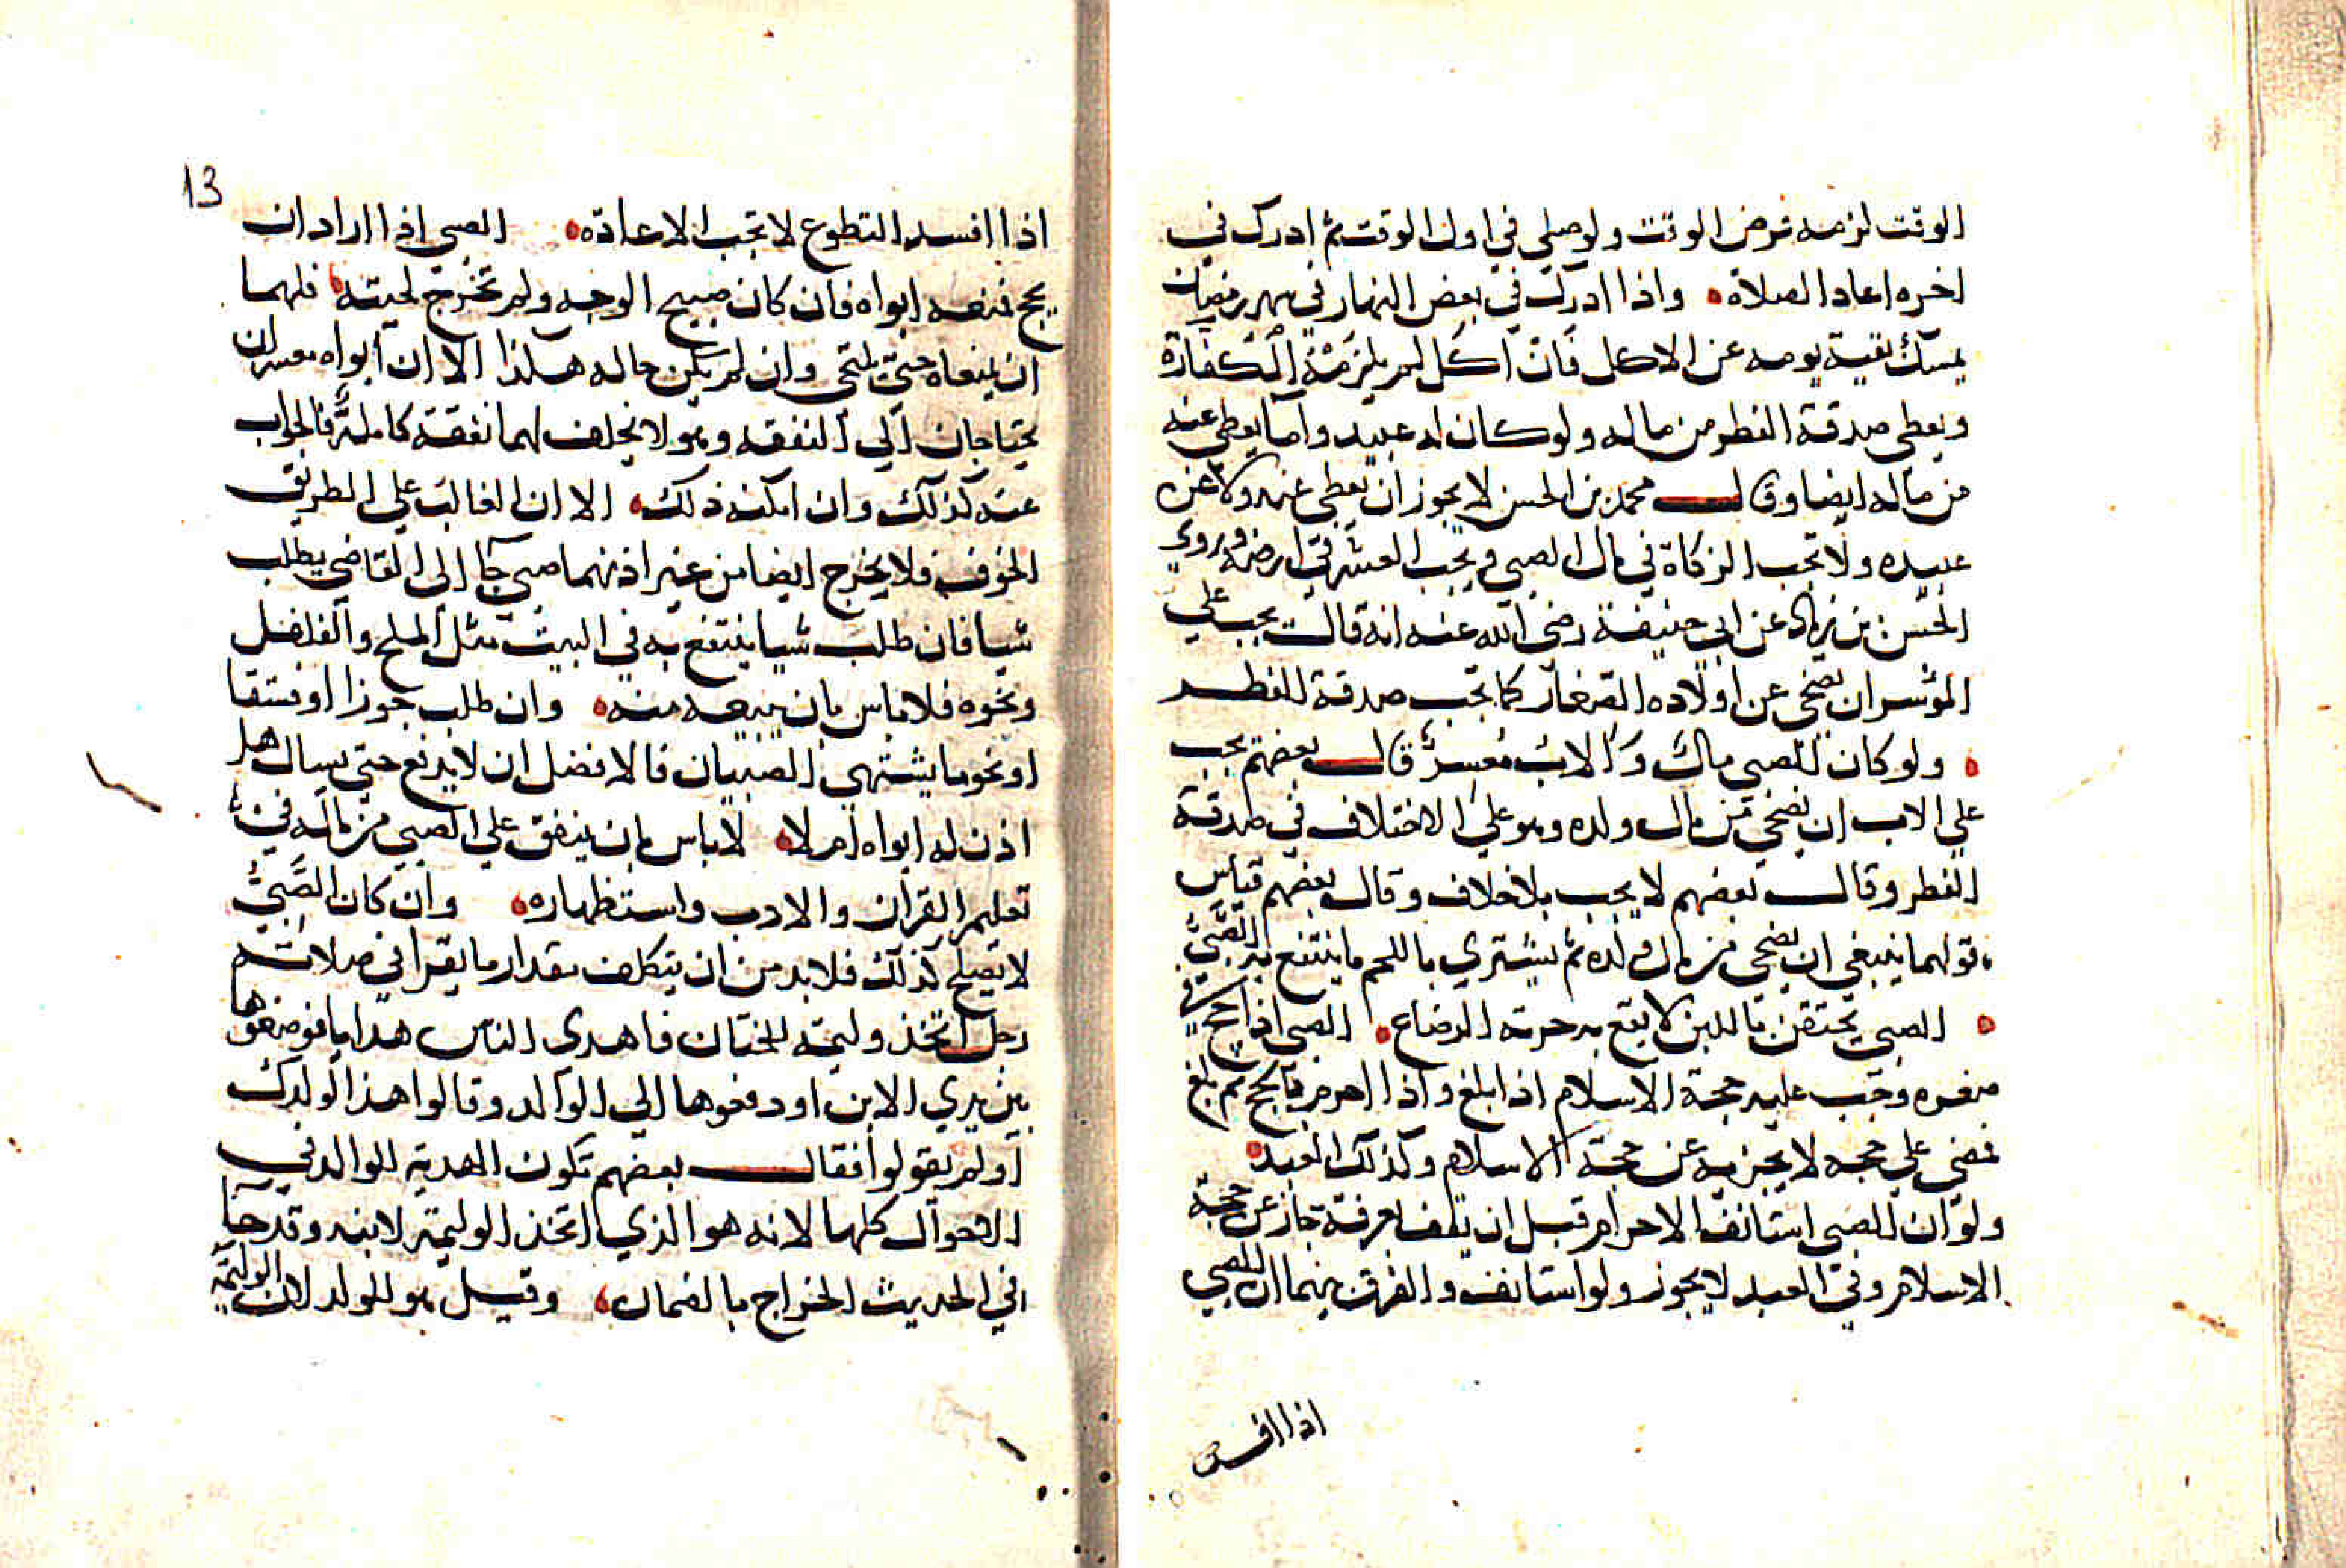 الوقت لزمه فرض الوقت ولو صلي في اول الوقت ثم ادرك في
اخره اعاد الصلاة واذا ادرك في بعض النهار في شهر رمضان
يمسك بقية يومه عن الاكل فان اكل لم يلزمه الكفارة
ويعطي صدقة الفطر من ماله ولو كان له عبيد واما يعطي عنه
من ماله ايضا وقال محمد بن الحسن لا يجوز ان يعطي عنه ولا عن
عبيده ولا تجب الزكاة في مال الصبي ويجب العشر في ارضه وروي
الحسن بن زياد عن ابي حنيفة رضي الله عنه انه قال يجب علي
الموسر ان يضحي عن اولاده الصغار كما تجب صدقة الفطر
ولو كان للصبي مال والاب معسر قال بعضهم يجب
علي الاب ان يضحي من مال ولده وهو علي الاختلاف في صدقة
الفطر وقال بعضهم لا يجب بلا خلاف وقال بعضهم قياس
قولهما ينبغي ان يضحي من مال ولده ثم يشتري باللحم ما ينتفع به الصبي
الصبي يحتقن باللبن لا يقع به حرمة الرضاع الصبي اذا حج في
صغره وجب عليه حجة الاسلام اذا بلغ واذا احرم بالحج ثم بلغ
فمضي علي حجه لا يجزيه عن حجة الاسلام وكذلك العبد
ولو ان الصبي استانف الاحرام قبل ان يقف بعرفة جاز عن حجة
الاسلام وفي العبد لا يجوز ولو استانف والفرق بينهما ان الصبي
اذا افسد
13
اذا افسد التطوع لا تجب الاعادة الصبي اذا اراد ان
يحج فمنعه ابواه فان كان صبيح الوجه ولم تخرج لحيته فلهما
ان يمنعاه حتى يلتحي وان لم يكن حاله هكذا الا ان ابواه معسران
يحتاجان الي النفقه وهو لا يخلف لهما نفقة كاملة فالجواب
عنه كذلك وان امكنه ذلك الا ان الغالب علي الطريق
الخوف فلا يخرج ايضا من غير اذنهما صبي جا الى القاضي يطلب
شيا فان طلب شيا ينتفع به في البيت مثل الملح والفلفل
ونحوه فلا باس بان يبيعه منه وان طلب جوزا او فستقا
او نحو ما يشتهي الصبيان فالافضل ان لا يدفع حتى يسال هل
اذن له ابواه ام لا لا باس بان ينفق علي الصبي من ماله في
تعليم القران والادب واستظهاره وان كان الصبي
لا يصلح لذلك فلا بد من ان يتكلف مقدار ما يقرا في صلاته
رجل اتخذ وليمة للختان فاهدى الناس هدايا فوضعوها
بين يدي الابن او دفعوها الي الوالد وقالوا هذا لولدك
او لم يقولوا فقال بعضهم تكون الهدية للوالد في
الاحوال كلها لانه هو الذي اتخذ الوليمة لابنه وقد جا
في الحديث الخراج بالضمان وقيل هو للولد لان الوليمة